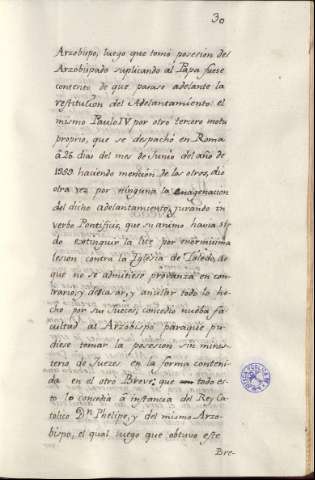 30
Arzobispo, luego que tomó posesion del
Arzobispado suplicando al Papa fuese
contento de que parase adelante la
restitucion del Adelantamiento: el
mismo Paulo IV. por otro tercero motu
proprio, que se despachó en Roma
â 26 dias del mes de Junio del año de
1559. haciendo mencion de las otros, dio
otra vez por ninguna la enagenacion
del dicho adelantamiento, jurando in
verbo Pontificis, que su animo havia si-
do extinguir la lite, por enormisima
lesion contra la Iglesia de Toledo, de
que no se admitiese provanza en con-
trario, y de casar, y anular todo lo he-
cho por sus Jueces, concedio nueba fa-
cultad al Arzobispo para que pu-
diese tomar la posesion sin minis-
terio de Juezes en la forma conteni-
da en el otro Breve, que todo es-
to lo concedia â instancia del Rey Ca-
tolico Dn. Phelipe, y del mismo Arzo-
bispo, el qual luego que obtuvo este
Bre-